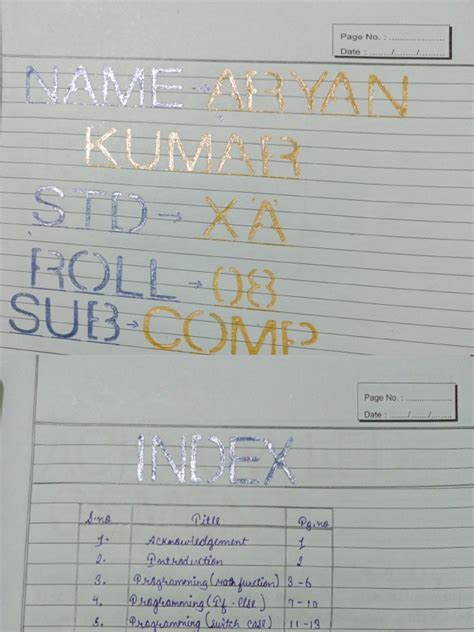 Page No. : ....................
Date : ......../......../........
NAME → ARYAN
KUMAR
STD → XA
ROLL → 08
SUB → COMP
Page No. : ....................
Date : ......../......../........
INDEX
S.no Title Pg.no
1. Acknowledgement 1
2. Introduction 2
3. Programming (math function) 3-6
4. Programming (If-else) 7-10
5. Programming (switch case) 11-13